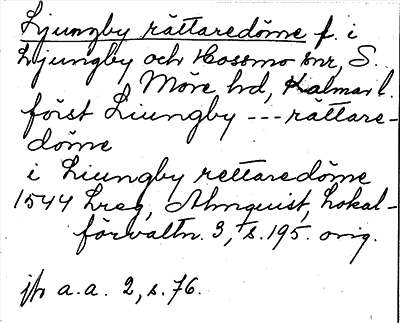 Ljungby rättaredöme f. i
Ljungby och Hossmo snr, S.
Möre hd, Kalmar l.
förist Liungby --- rättare-
döme
i Liungby rettaredöme
1544 Lreg, Almquist, Lokal-
förvaltn. 3, s. 195. orig.
jfr a.a. 2, s. 76.